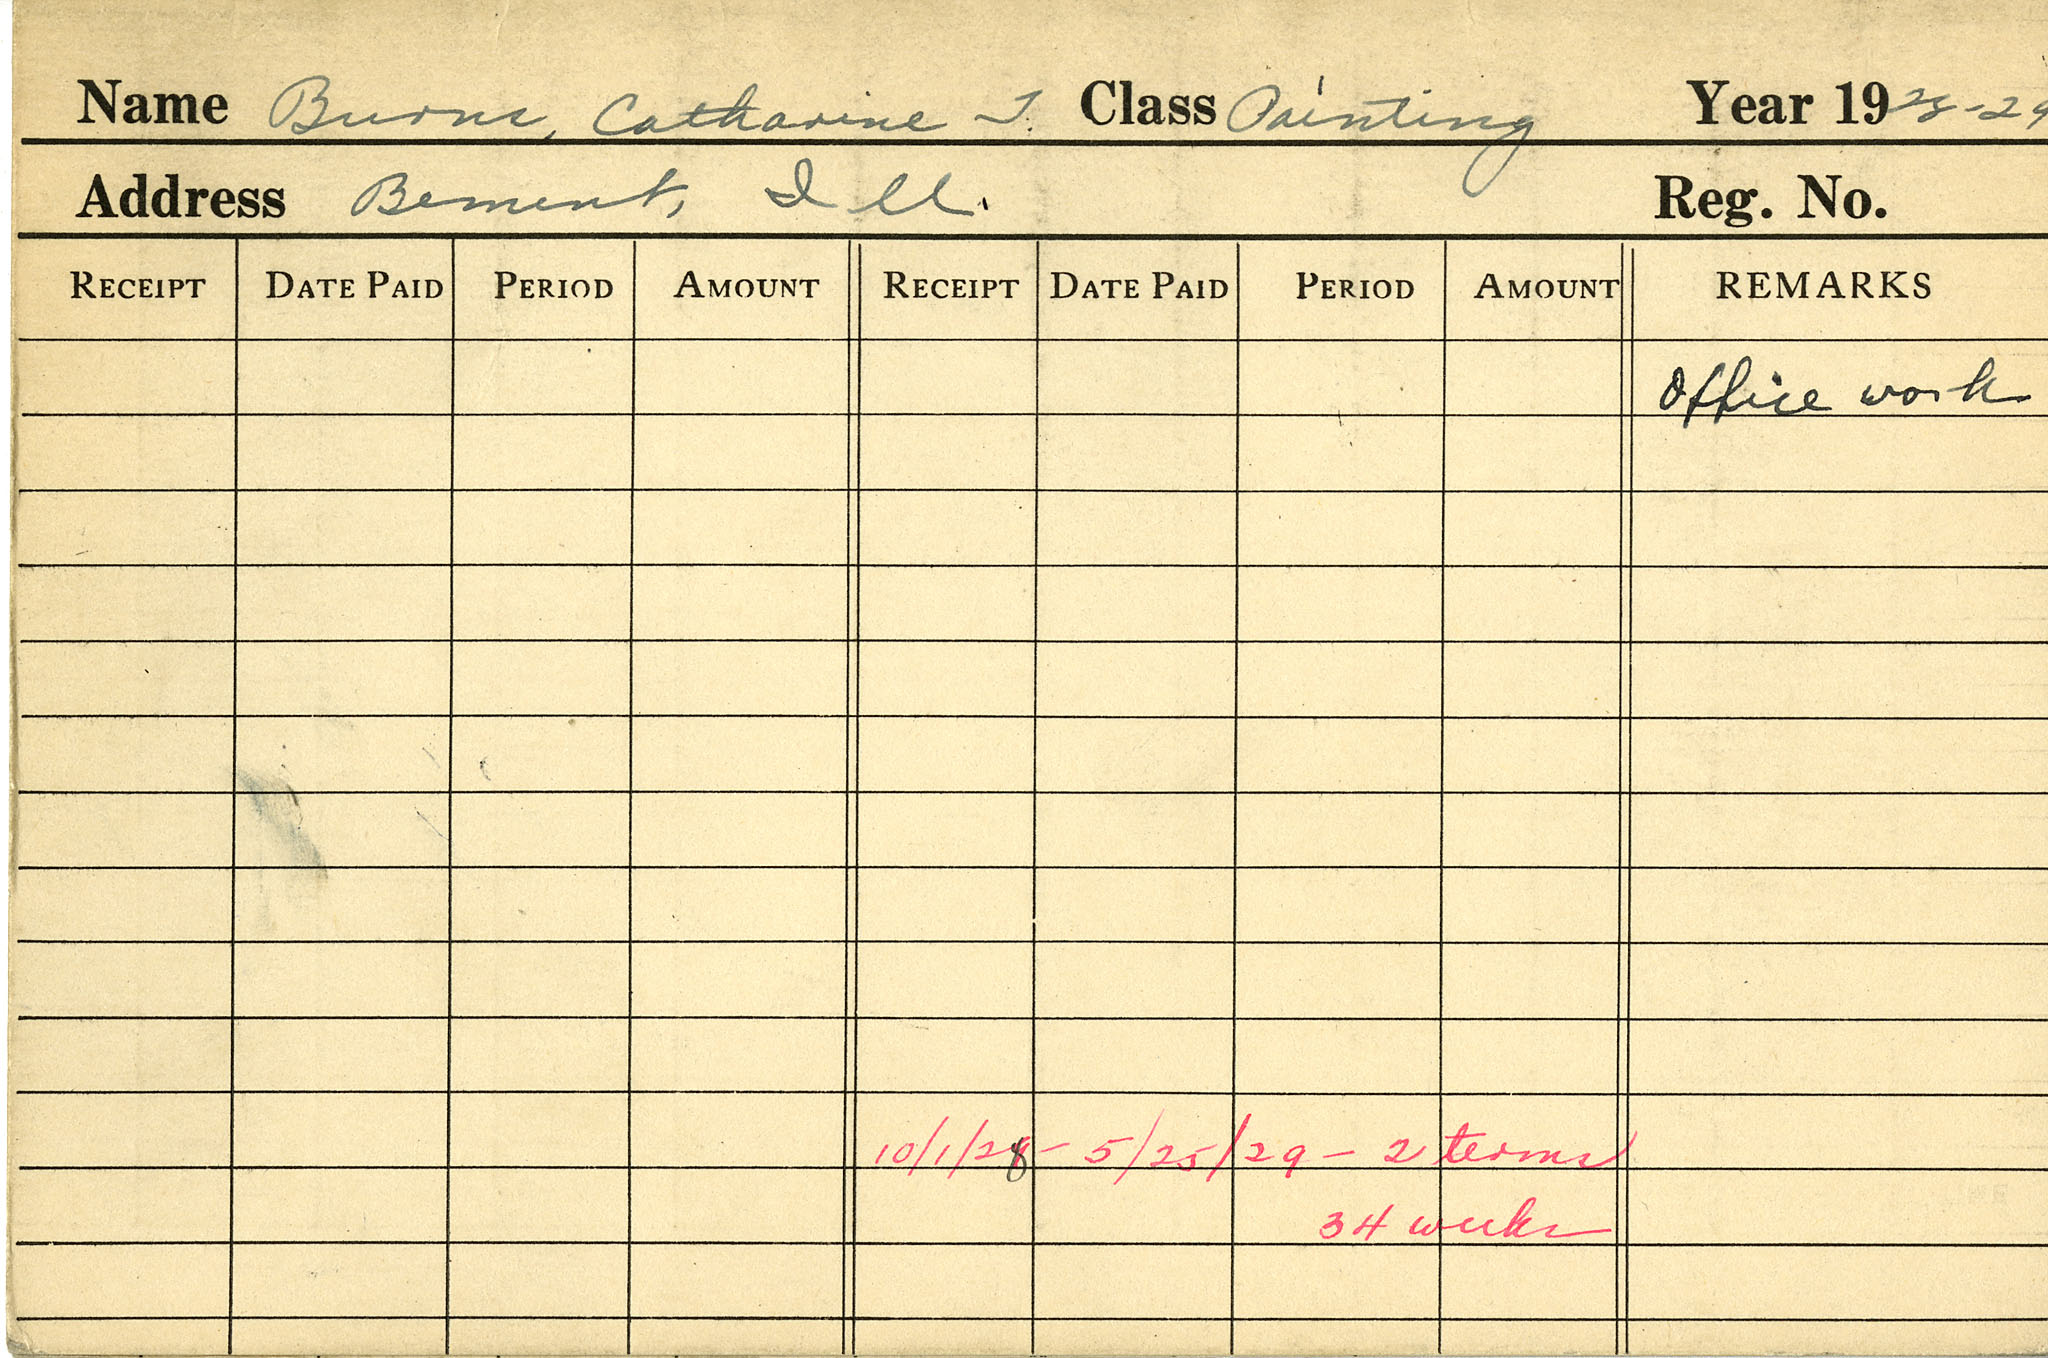 Name Burns, Catharine T. Class Painting Year 1928-29
Address Bement, Ill. Reg. No.
RECEIPT DATE PAID PERIOD AMOUNT RECEIPT DATE PAID PERIOD AMOUNT REMARKS
Office work
10/1/28 - 5/25/29 - 2 terms
34 weeks